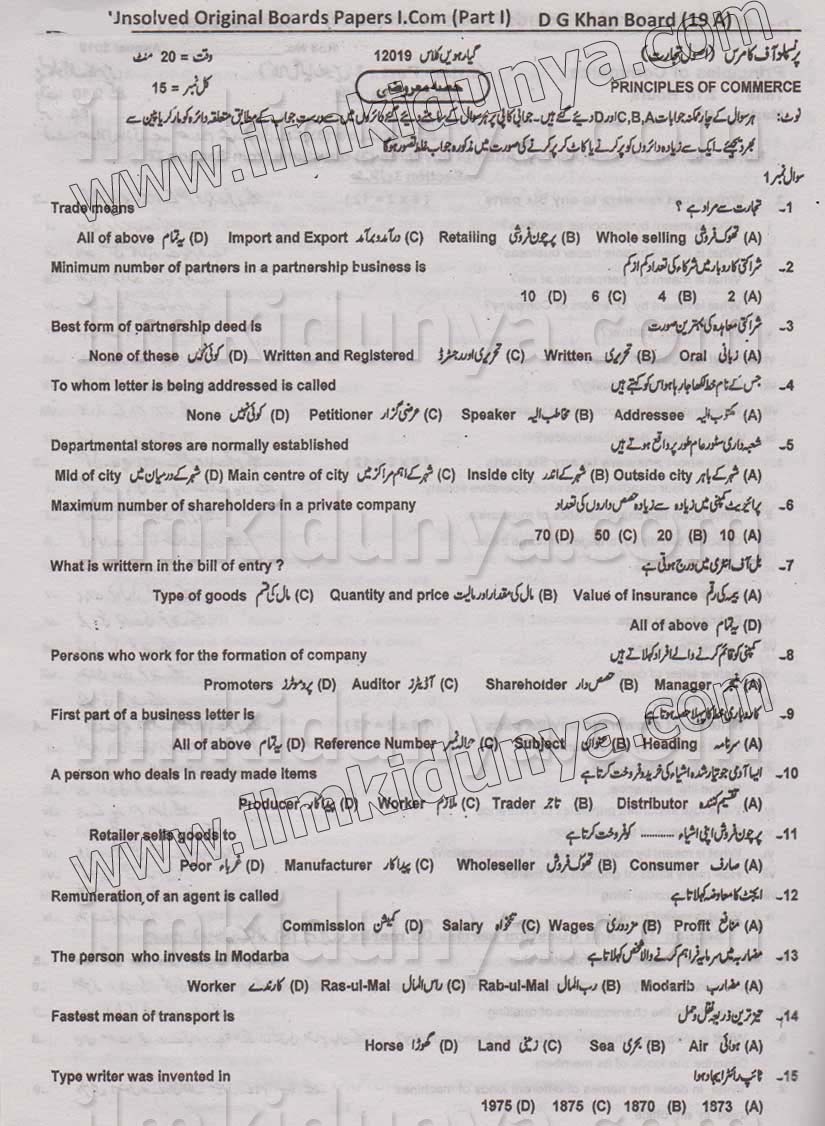 'Jnsolved Original Boards Papers I.Com (Part I) D G Khan Board (19 A)
پرنسپلز آف کامرس (اصول تجارت) گیارہویں کلاس 12019 وقت = 20 منٹ
PRINCIPLES OF COMMERCE حصہ معروضی کل نمبر = 15
نوٹ: ہر سوال کے چار ممکنہ جوابات C,B,A اور D دیئے گئے ہیں۔ جوابی کاپی پر ہر سوال کے سامنے دیئے گئے دائروں میں سے درست جواب کے مطابق متعلقہ دائرہ کو مارکر یا پین سے
بھر دیجیئے۔ ایک سے زیادہ دائروں کو پر کرنے یا کاٹ کر پر کرنے کی صورت میں مذکورہ جواب غلط تصور ہوگا
سوال نمبر 1
1۔ تجارت سے مراد ہے ؟ Trade means
(A) تھوک فروشی Whole selling (B) پرچون فروشی Retailing (C) درآمد برآمد Import and Export (D) یہ تمام All of above
2۔ شراکتی کاروبار میں شرکاء کی تعداد کم از کم Minimum number of partners in a partnership business is
(A) 2 (B) 4 (C) 6 (D) 10
3۔ شراکتی معاہدہ کی بہترین صورت Best form of partnership deed is
(A) زبانی Oral (B) تحریری Written (C) تحریری اور رجسٹرڈ Written and Registered (D) کوئی نہیں None of these
4۔ جس کے نام خط لکھا جا رہا ہو اس کو کہتے ہیں To whom letter is being addressed is called
(A) مکتوب الیہ Addressee (B) مخاطب الیہ Speaker (C) عرضی گزار Petitioner (D) کوئی نہیں None
5۔ شعبہ داری سٹور عام طور پر واقع ہوتے ہیں Departmental stores are normally established
(A) شہر کے باہر Outside city (B) شہر کے اندر Inside city (C) شہر کے اہم مراکز میں Main centre of city (D) شہر کے درمیان میں Mid of city
6۔ پرائیویٹ کمپنی میں زیادہ سے زیادہ حصص داروں کی تعداد Maximum number of shareholders in a private company
(A) 10 (B) 20 (C) 50 (D) 70
7۔ بل آف انٹری میں درج ہوتی ہے What is writtern in the bill of entry ?
(A) بیمہ کی رقم Value of insurance (B) مال کی مقدار اور مالیت Quantity and price (C) مال کی قسم Type of goods
(D) یہ تمام All of above
8۔ کمپنی کو قائم کرنے والے افراد کہلاتے ہیں Persons who work for the formation of company
(A) منیجر Manager (B) حصص دار Shareholder (C) آڈیٹرز Auditor (D) پروموٹرز Promoters
9۔ کاروباری خط کا پہلا حصہ ہوتا ہے First part of a business letter is
(A) سرنامہ Heading (B) عنوان Subject (C) حوالہ نمبر Reference Number (D) یہ تمام All of above
10۔ ایسا آدمی جو تیار شدہ اشیاء کی خرید و فروخت کرتا ہے A person who deals in ready made items
(A) تقسیم کنندہ Distributor (B) تاجر Trader (C) ملازم Worker (D) پیداکار Producer
11۔ پرچون فروش اپنی اشیاء ............ کو فروخت کرتا ہے Retailer sells goods to
(A) صارف Consumer (B) تھوک فروش Wholeseller (C) پیداکار Manufacturer (D) غرباء Poor
12۔ ایجنٹ کا معاوضہ کہلاتا ہے Remuneration of an agent is called
(A) منافع Profit (B) مزدوری Wages (C) تنخواہ Salary (D) کمیشن Commission
13۔ مضاربہ میں سرمایہ فراہم کرنے والا شخص کہلاتا ہے The person who invests in Modarba
(A) مضارب Modarib (B) رب المال Rab-ul-Mal (C) راس المال Ras-ul-Mal (D) کارندے Worker
14۔ تیز ترین ذریعہ نقل و حمل Fastest mean of transport is
(A) ہوائی Air (B) بحری Sea (C) زمینی Land (D) گھوڑا Horse
15۔ ٹائپ رائٹر ایجاد ہوا Type writer was invented in
(A) 1873 (B) 1870 (C) 1875 (D) 1975
www.ilmkidunya.com